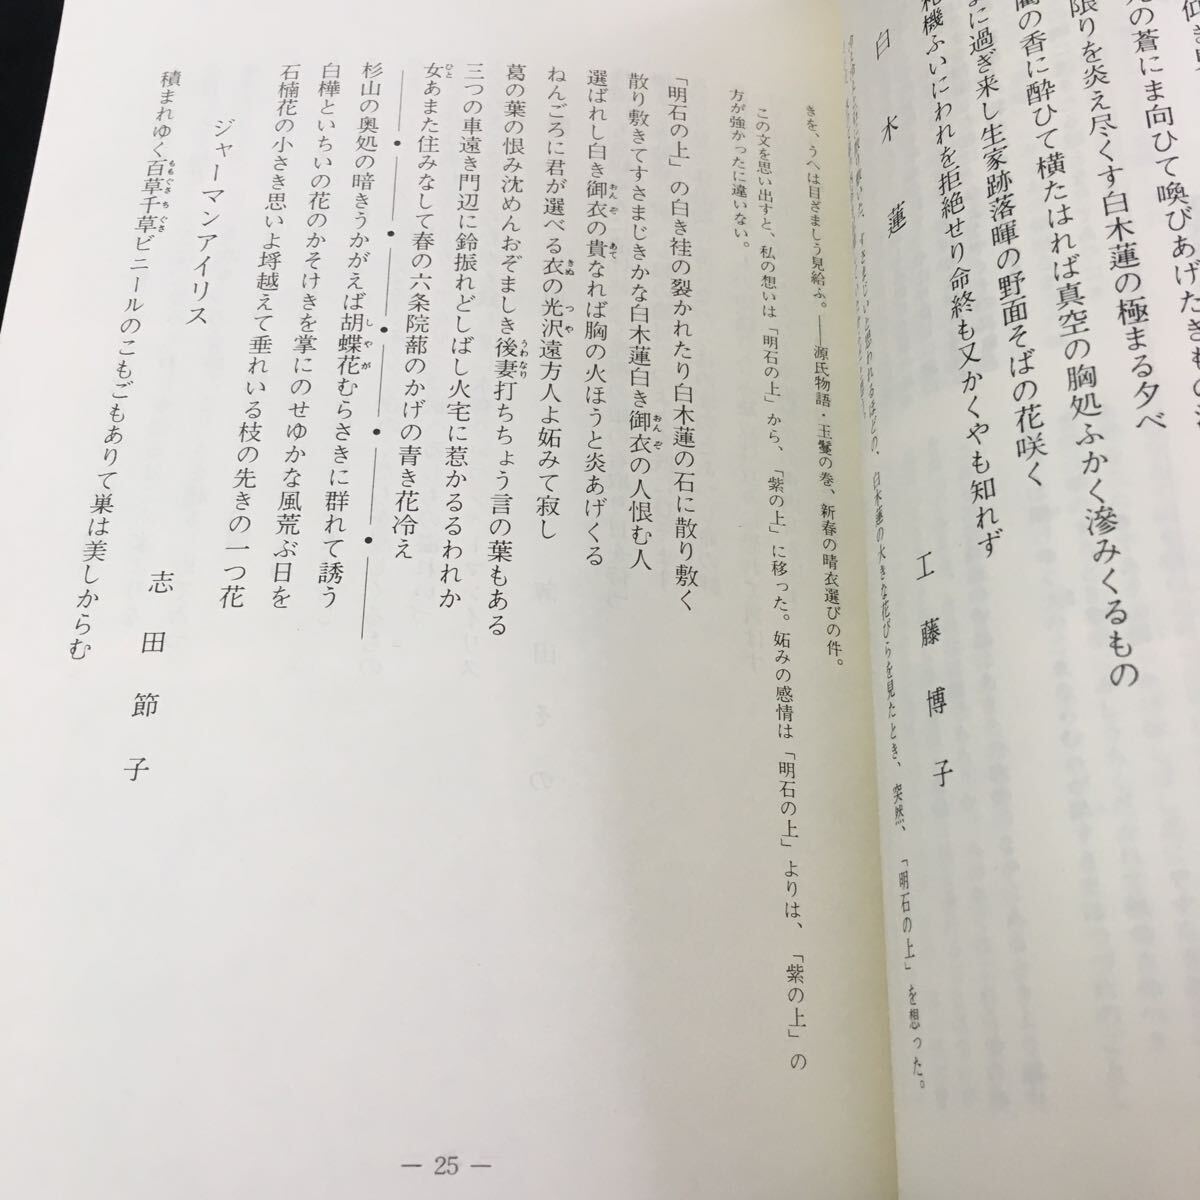 の蒼にま向ひて喚びあげたきもの
限りを炎え尽くす白木蓮の極まる夕べ
の香に酔ひて横たはれば真空の胸処ふかく滲みくるもの
に過ぎ来し生家跡落暉の野面そばの花咲く
機ふいにわれを拒絶せり命終も又かくやも知れず
白木蓮
工藤博子
白木蓮の大きな花びらを見たとき、突然、「明石の上」を想った。
きを、うへは目ざましう見給ふ。――源氏物語・玉鬘の巻、新春の晴衣選びの件。
この文を思い出すと、私の想いは「明石の上」から、「紫の上」に移った。妬みの感情は「明石の上」よりは、「紫の上」の
方が強かったに違いない。
「明石の上」の白き袿の裂かれたり白木蓮の石に散り敷く
散り敷きてすさまじきかな白木蓮白き御衣の人恨む人
選ばれし白き御衣の貴なれば胸の火ほうと炎あげくる
ねんごろに君が選べる衣の光沢遠方人よ妬みて寂し
葛の葉の恨み沈めんおぞましき後妻打ちちょう言の葉もある
三つの車遠き門辺に鈴振れどしばし火宅に惹かるるわれか
女あまた住みなして春の六条院蔀のかげの青き花冷え
杉山の奥処の暗きうかがえば胡蝶花むらさきに群れて誘う
白樺といちいの花のかそけきを掌にのせゆかな風荒ぶ日を
石楠花の小さき思いよ埒越えて垂れいる枝の先きの一つ花
ジャーマンアイリス
志田節子
積まれゆく百草千草ビニールのこもごもありて巣は美しからむ
― 25 ―